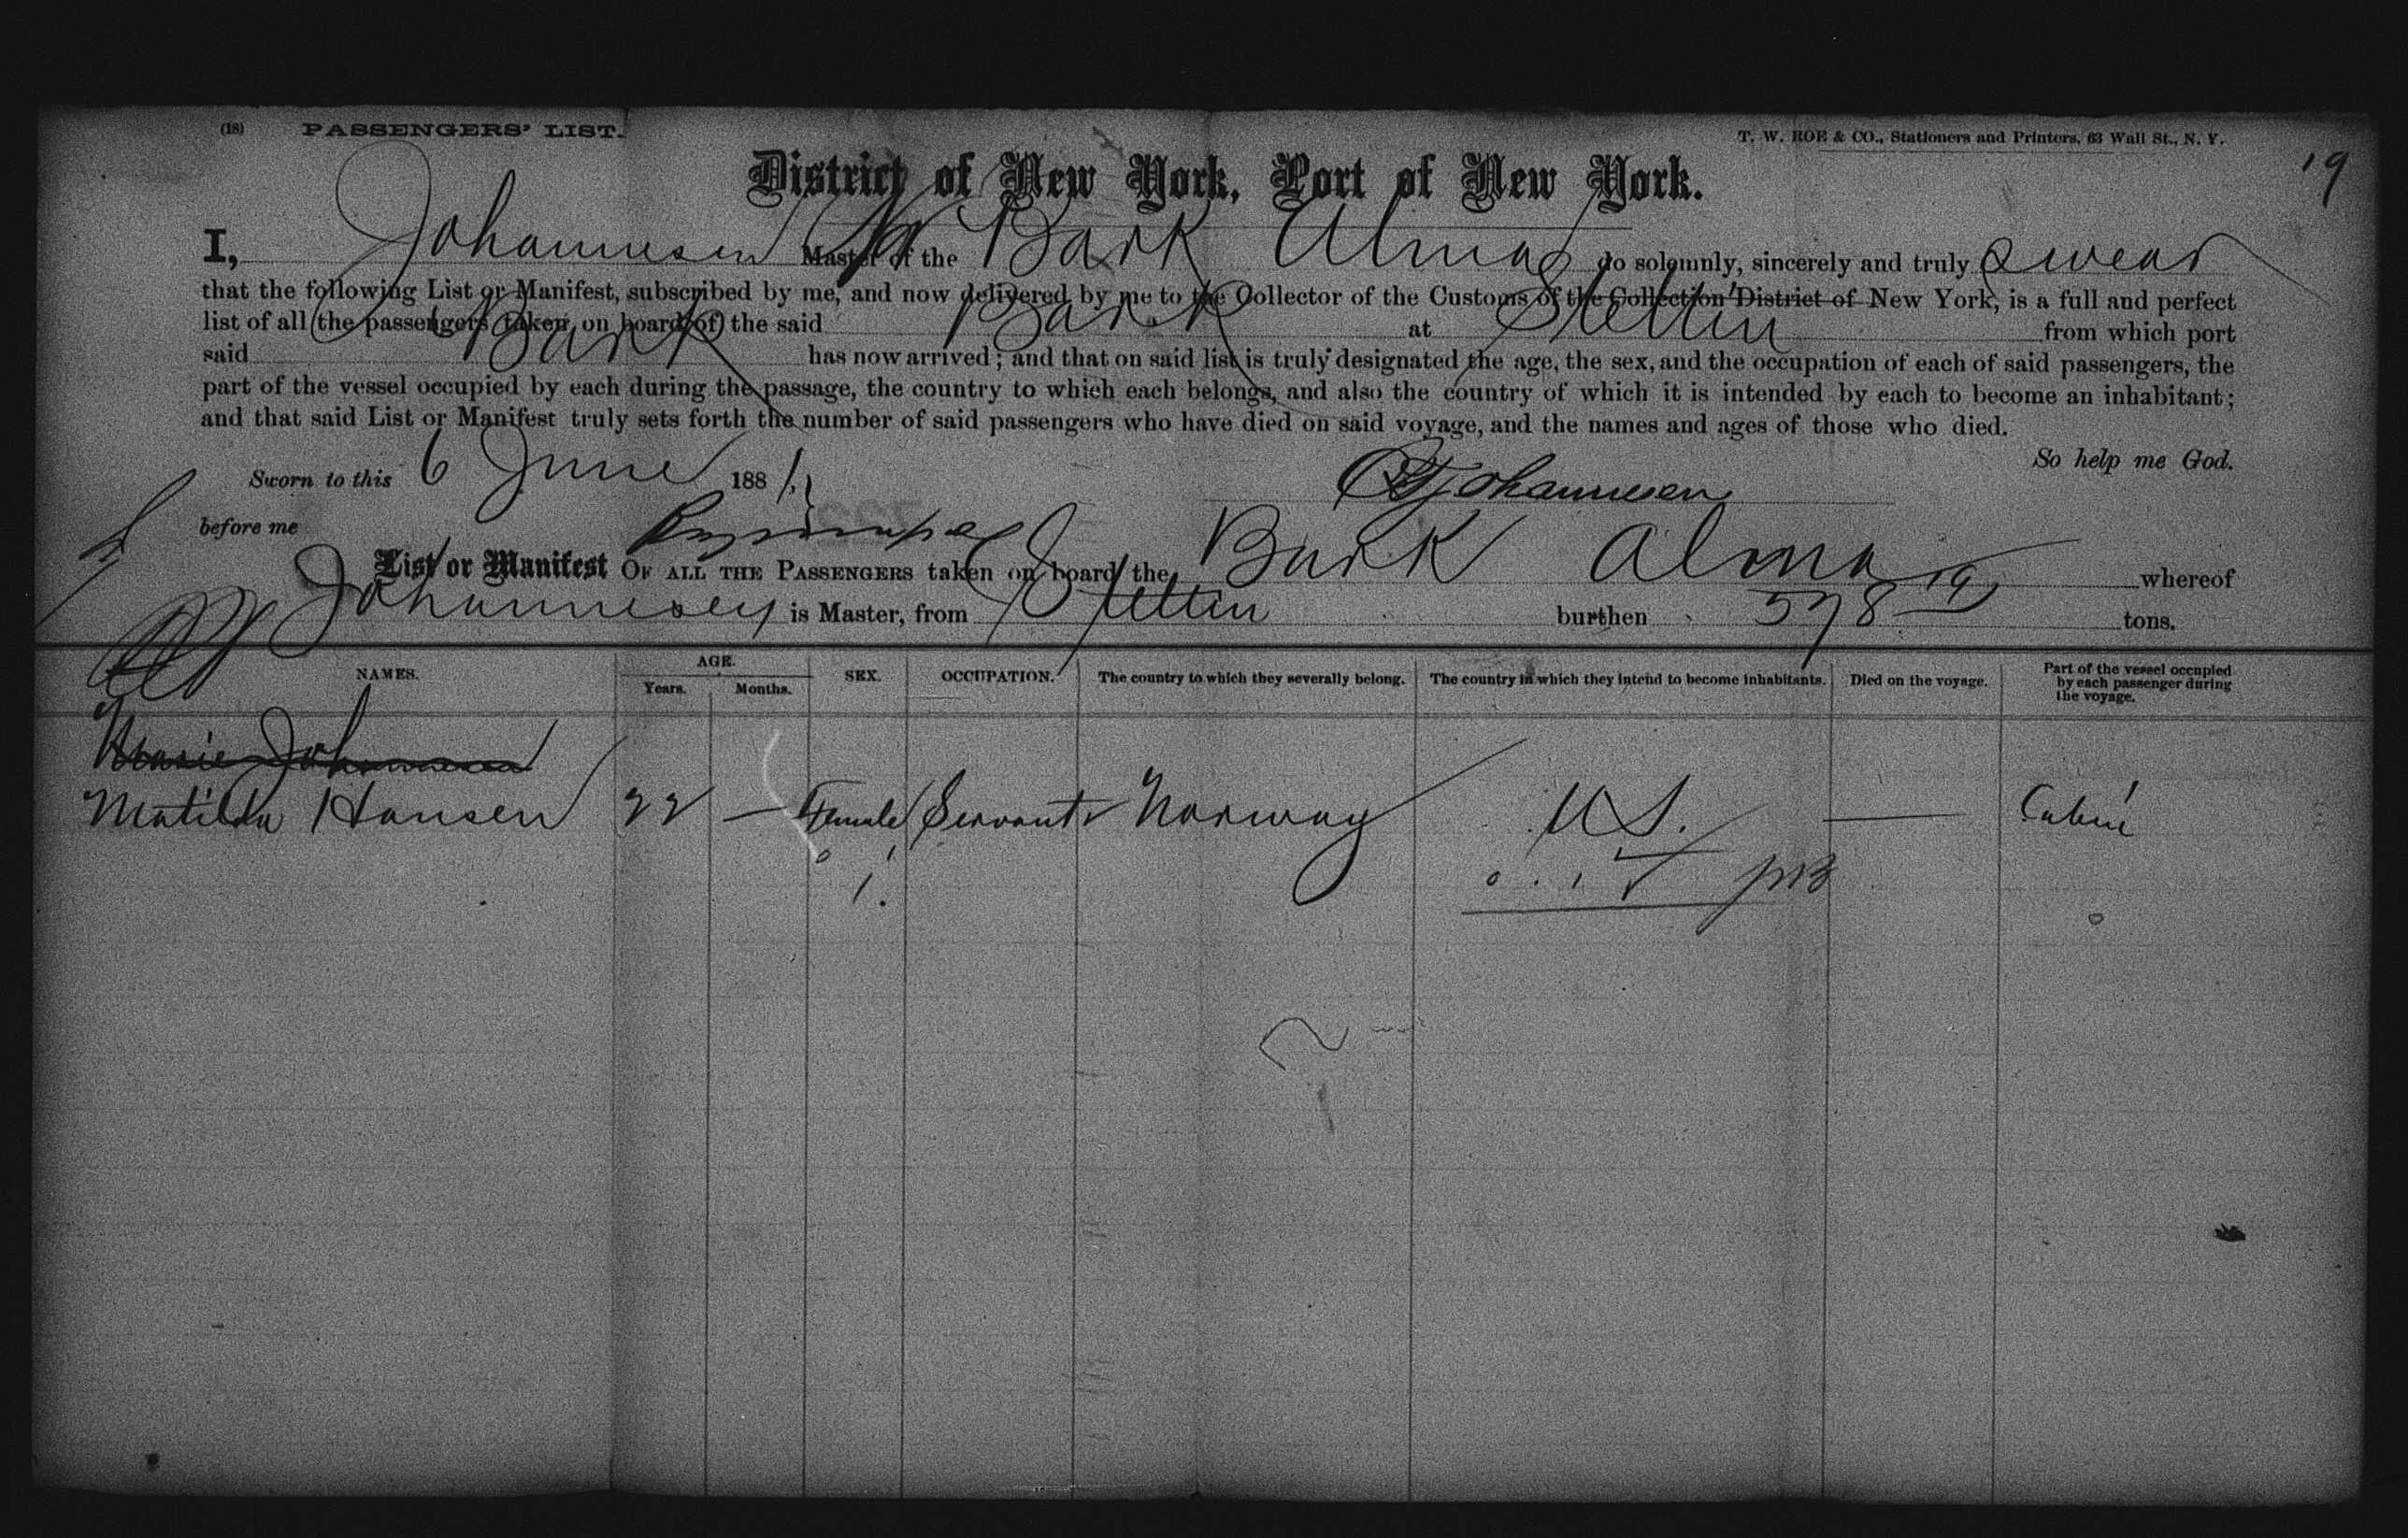 (18) PASSENGERS' LIST.
T. W. ROE & CO., Stationers and Printers, 63 Wall St., N. Y.
19
District of New York, Port of New York.
I, Johannesen Master of the Bark Alma do solemnly, sincerely and truly swear
that the following List or Manifest, subscribed by me, and now delivered by me to the Collector of the Customs of the Collection District of New York, is a full and perfect
list of all the passengers taken on board of the said Bark at Stettin from which port
said Bark has now arrived; and that on said list is truly designated the age, the sex, and the occupation of each of said passengers, the
part of the vessel occupied by each during the passage, the country to which each belongs, and also the country of which it is intended by each to become an inhabitant;
and that said List or Manifest truly sets forth the number of said passengers who have died on said voyage, and the names and ages of those who died.
So help me God.
Sworn to this 6 June 1881
Johannesen
before me
List or Manifest OF ALL THE PASSENGERS taken on board the Bark Alma whereof
Johannesen is Master, from Stettin burthen 578 tons.
NAMES. AGE. Years. Months. SEX. OCCUPATION. The country to which they severally belong. The country in which they intend to become inhabitants. Died on the voyage. Part of the vessel occupied by each passenger during the voyage.
Marie Johannesen
Matilda Hansen 22 — Female Servant Norway U S. — Cabin
1.